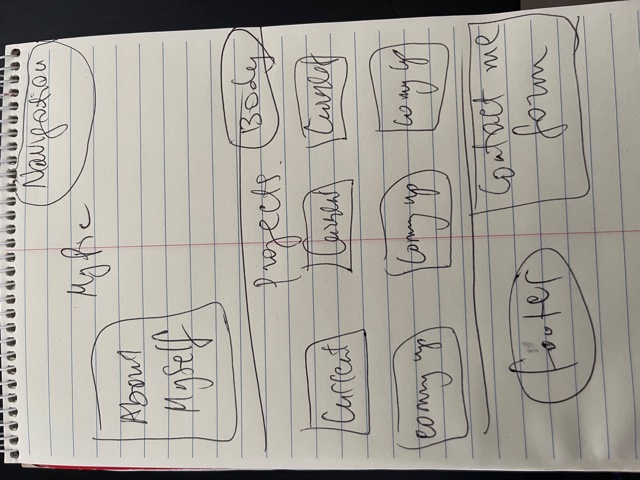 Navigation
My Pic
About
Myself
Body
Projects.
Current
Current
Current
coming up
Coming up
Coming up
Contact me
form
footer